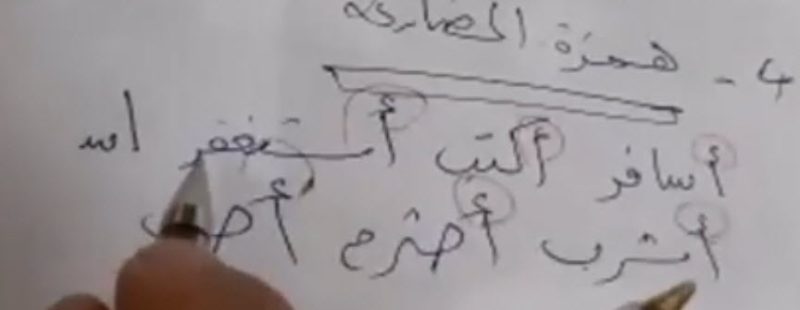 4 - همزة المضارعة
أسافر أكتب أستغفر الله
أشرب أحترم أحب